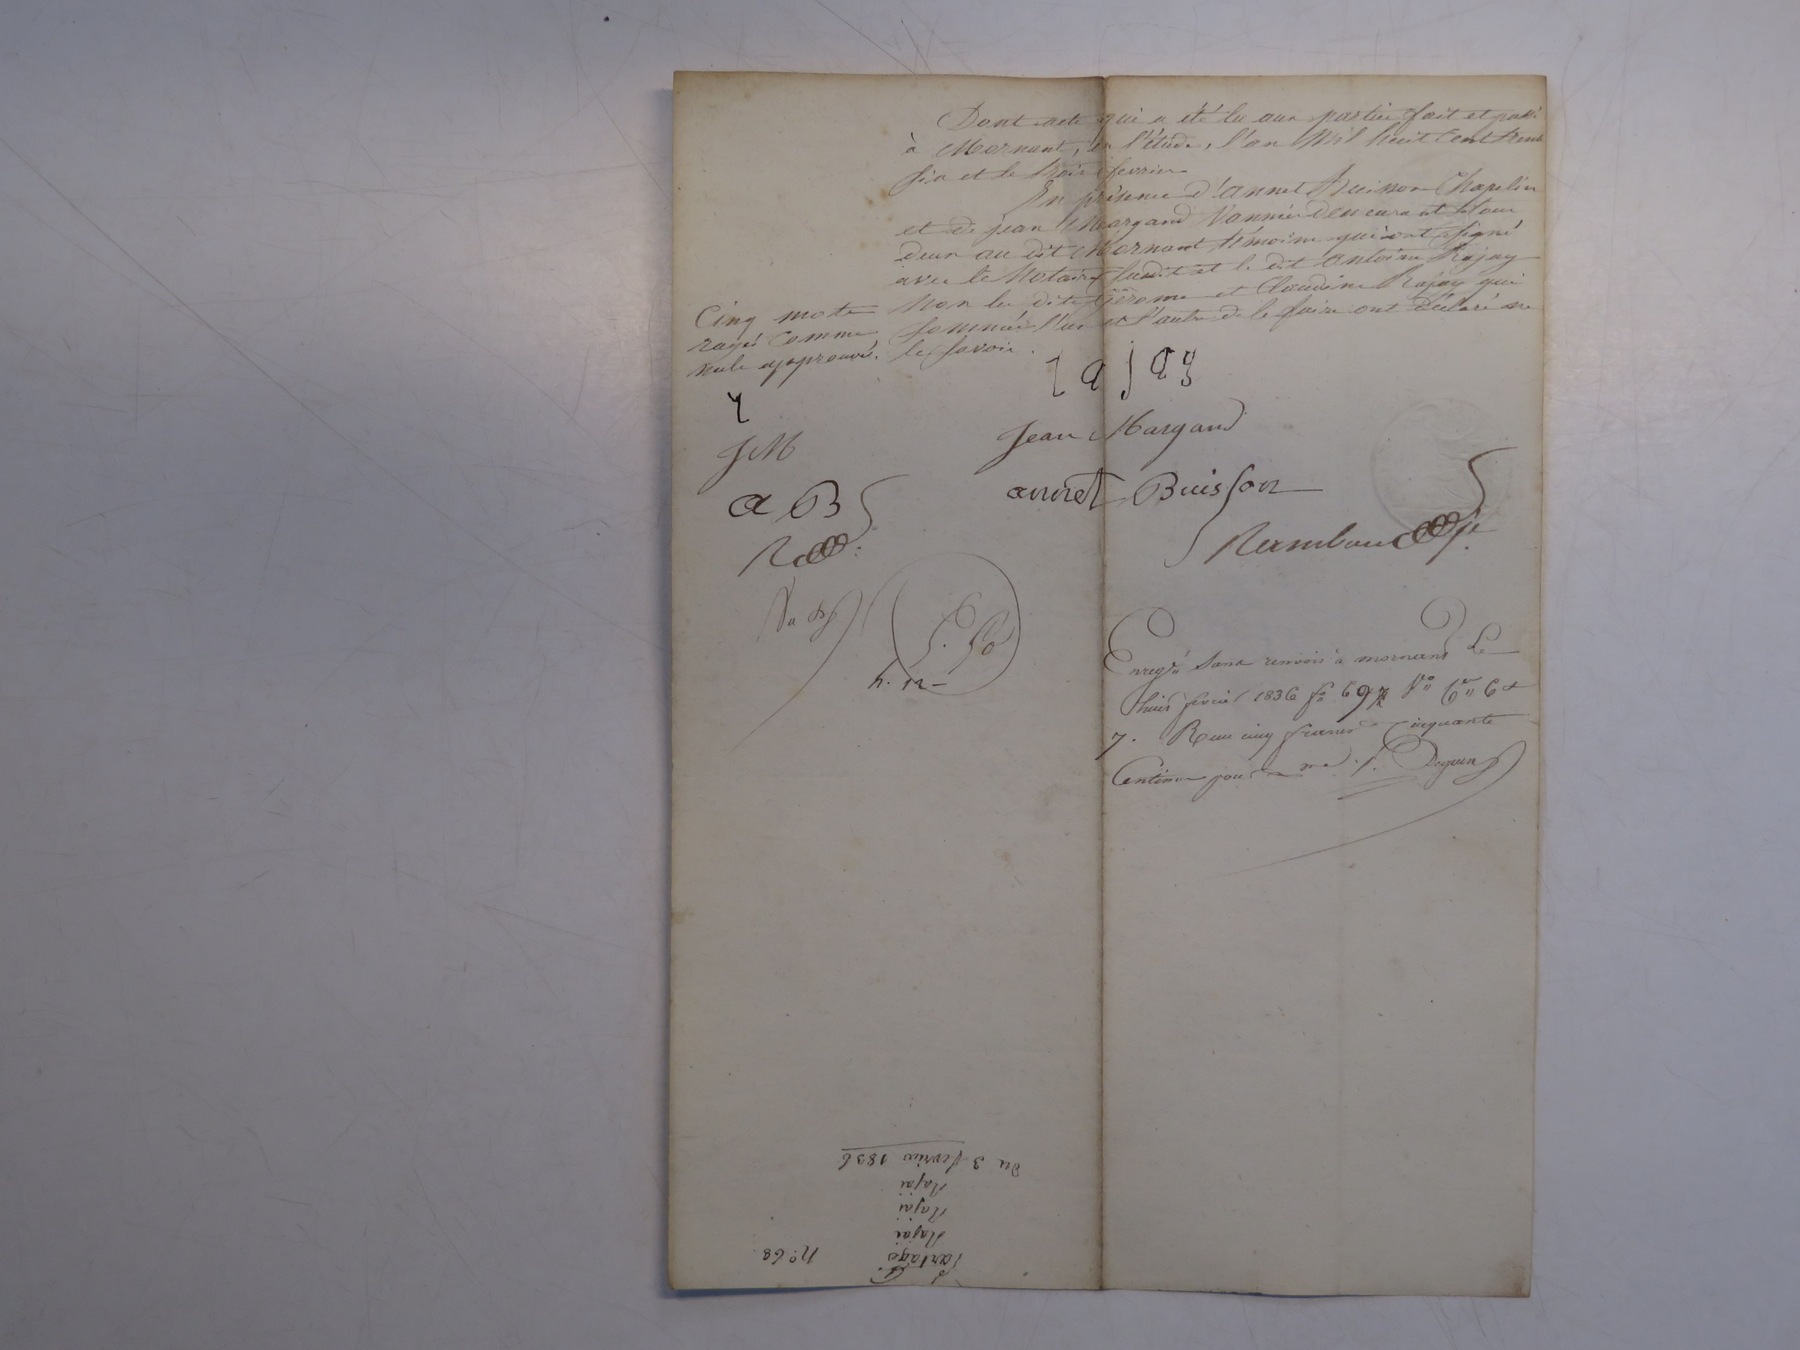 Dont acte qui a été lu aux parties fait et passé
à Mornant, en l'étude, l'an Mil huit cent trente
six et le trois fevrier
En présence d'annet Buisson Chapelier
et de jean Margand Vannier demeurant tous
deux au dit Mornant témoins qui ont signé
avec le Notaire susdit et le dit antoine Rajay
Non les dits jérome et Claudine Rajay qui
sommés l'un et l'autre de le faire ont déclaré ne
le savoir.
Cinq mots
rayés comme
nuls approuvés.
rajay
r
JM
Jean Margand
a B
annet Buisson
Rambaud
5. 50
h. 12
Enregtré sans renvoi à mornant Le
huit fevrier 1836 fo 697 Vo Co 6 et
7. Reçu cinq francs Cinquante
Centimes pour
Partage
Rajai
Rajai
Rajai
du 3 fevrier 1836
no. 68